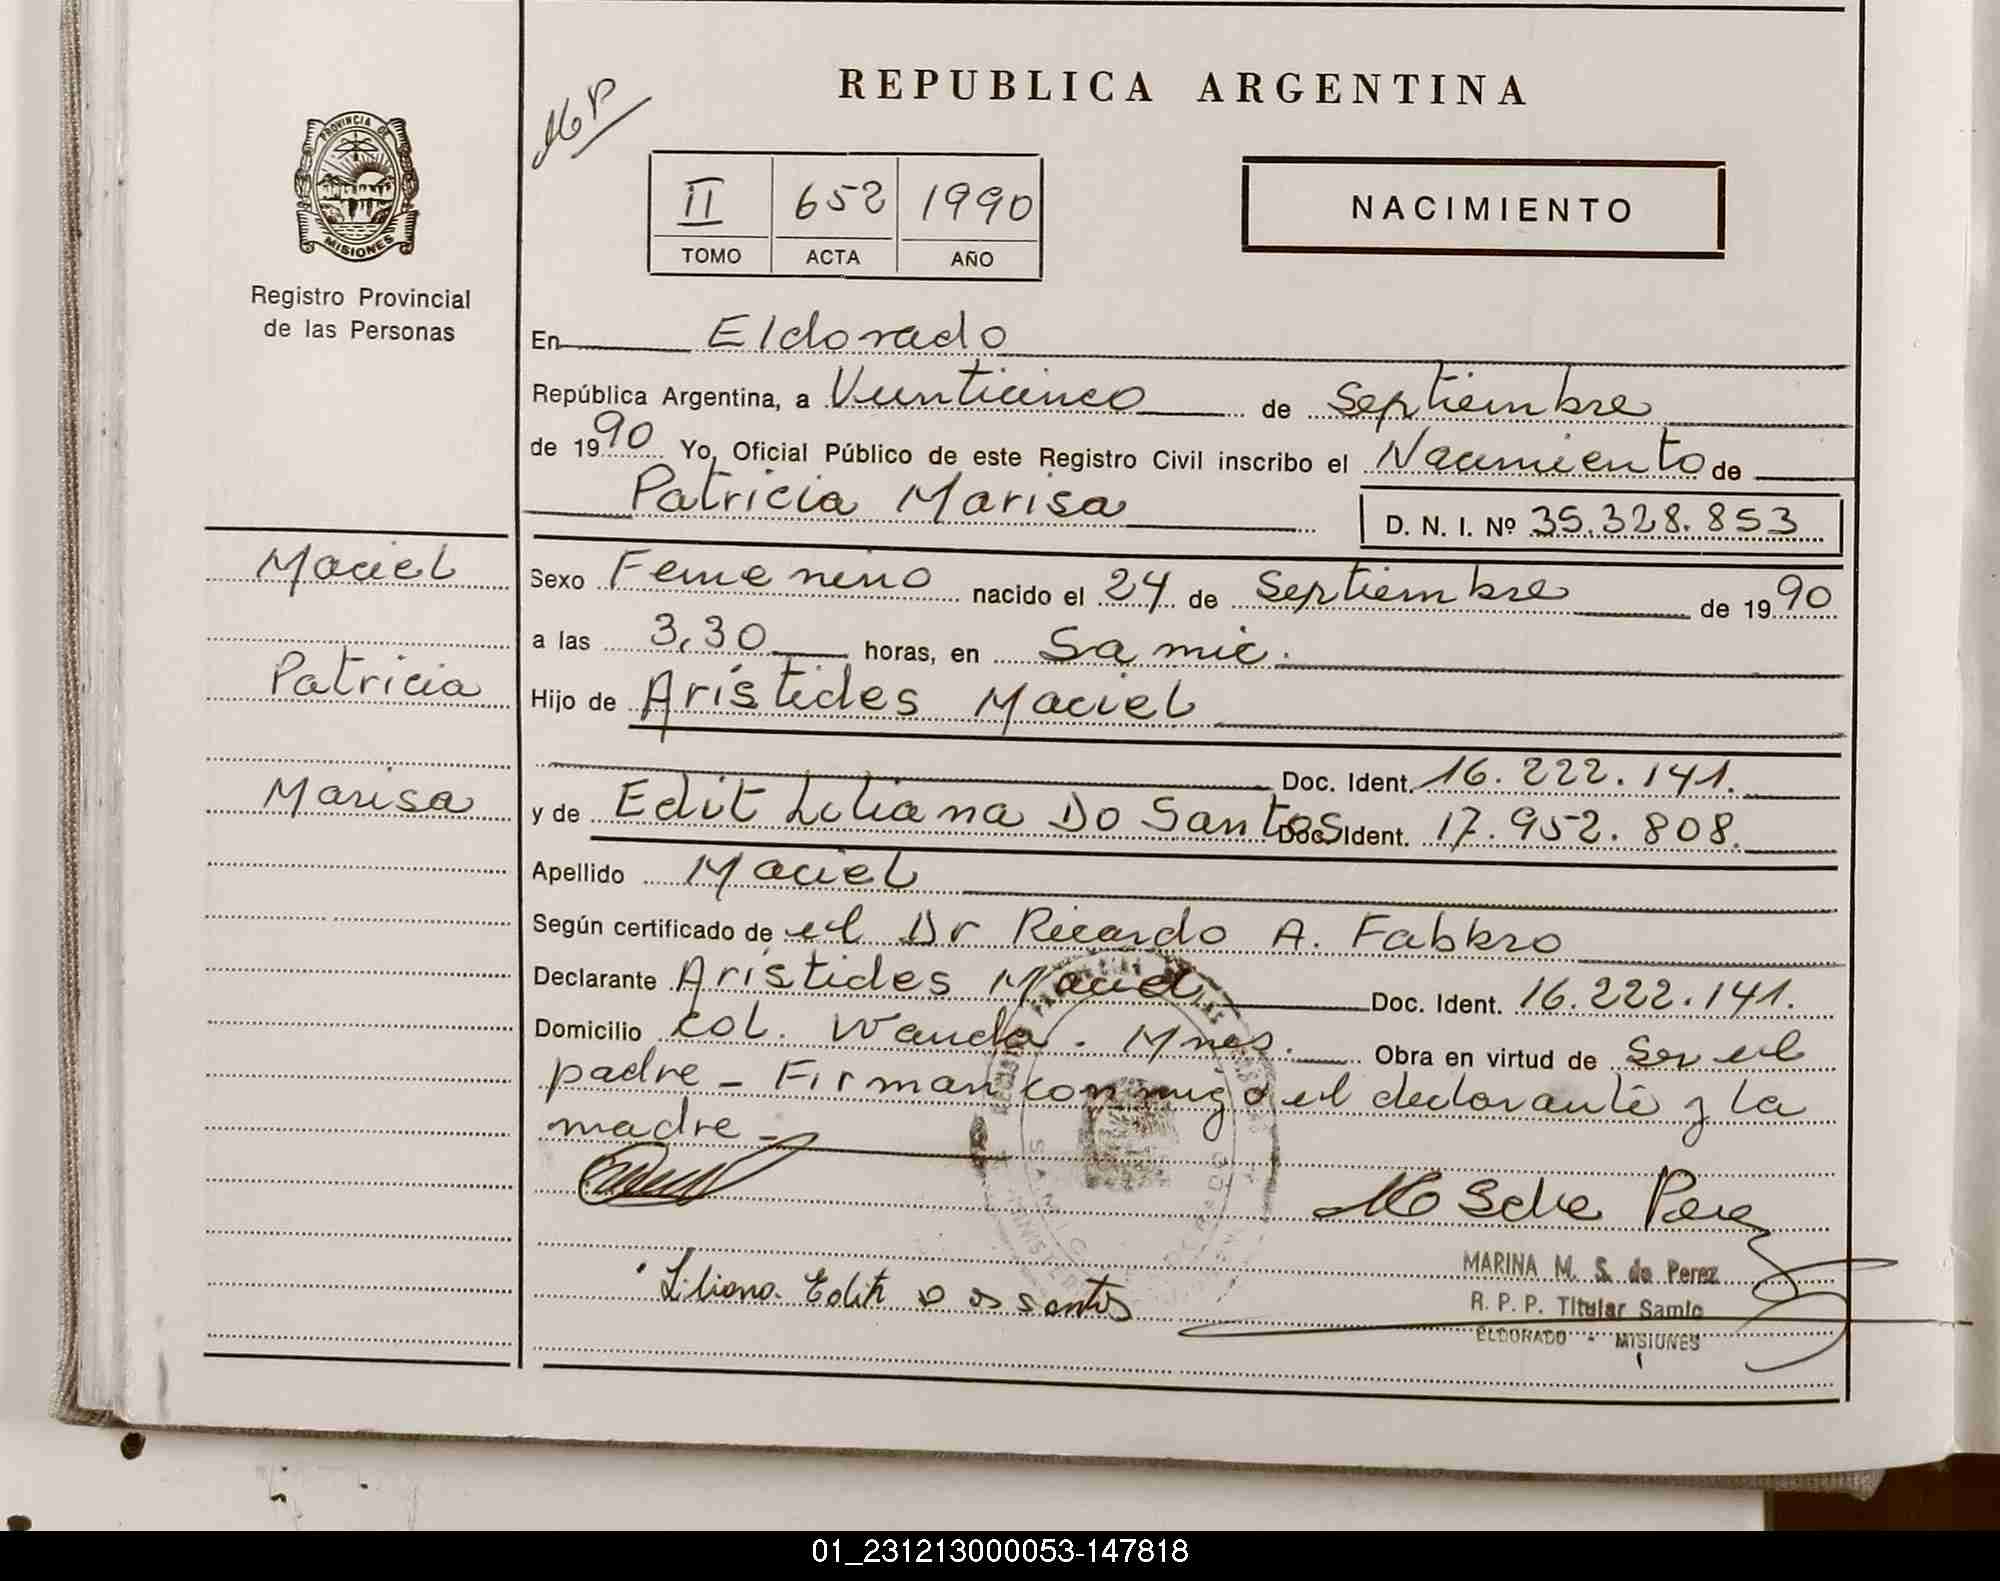 REPUBLICA ARGENTINA
MP
PROVINCIA DE
MISIONES
Registro Provincial
de las Personas
II 652 1990
TOMO ACTA AÑO
NACIMIENTO
En Eldorado
República Argentina, a Veinticinco de Septiembre
de 1990 Yo, Oficial Público de este Registro Civil inscribo el Nacimiento de
Patricia Marisa D. N. I. Nº 35.328.853
Maciel
Patricia
Marisa
Sexo Femenino nacido el 24 de Septiembre de 1990
a las 3,30 horas, en Samic.
Hijo de Arístides Maciel
Doc. Ident. 16.222.141.
y de Edit Liliana Do Santos Doc. Ident. 17.952.808.
Apellido Maciel
Según certificado de el Dr Ricardo A. Fabbro
Declarante Arístides Maciel Doc. Ident. 16.222.141.
Domicilio Col. Wanda. Mnes. Obra en virtud de Ser el
padre – Firman conmigo el declarante y la
madre –
Liliana Edit Do santos
MARINA M. S. de Perez
R. P. P. Titular Samic
ELDORADO - MISIONES
01_231213000053-147818